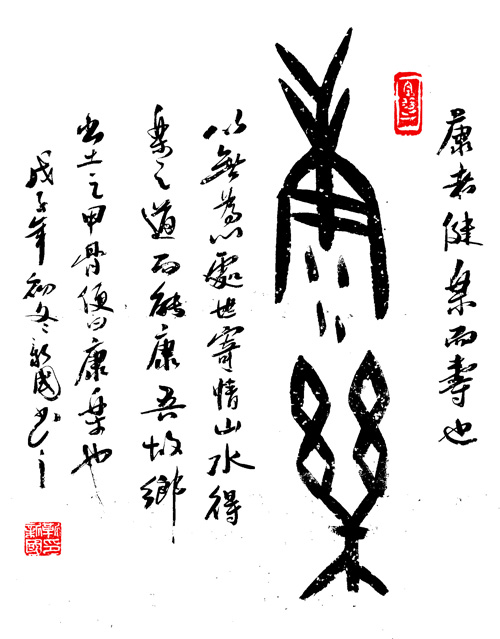 康者健樂而壽也
康樂
以無為心處世寄情山水得
樂之道而能康吾故鄉
出土之甲骨便曰康樂也
戊子年初冬新國書之